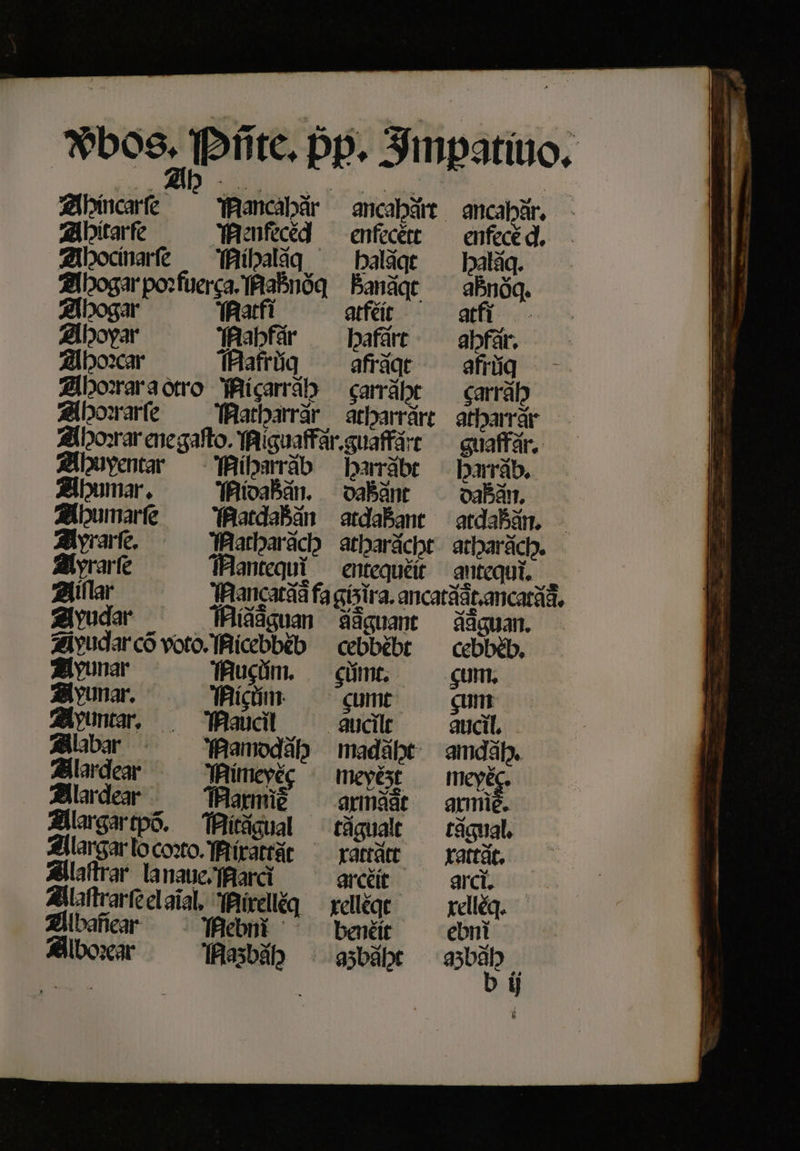 Ỽbos. Pñte. p̄p. Impatiuo.
Ah
Ahincarſe Nancahăr ancahărt ancahăr.
Ahitarſe Nenfecĕd enfecĕtt enfecĕ d.
Ahocinarſe Nihalăq halăqt halăq.
Ahogar poꝛ fuerça. Nabnŏq hanăqt abnŏq.
Ahogar Natfĭ atfĕit atfĭ
Ahoyar Nahfăr hafărt ahfăr.
Ahoꝛcar Nafrŭq afrăqt afrŭq
Ahoꝛrar a otro Niçarrăh çarrăht çarrăh
Ahoꝛrarſe Natharrăr atharrărt atharrăr
Ahoꝛrar ene gaſto. Niguaffăr. guaffărt guaffăr.
Ahuyentar Niharrăb harrăbt harrăb.
Ahumar. Nidahăn. dahănt dahăn.
Ahumarſe Natdahăn atdahant atdahăn.
Ayrarſe. Natharăch atharăcht atharăch.
Ayrarſe Nantequĭ entequĕit antequĭ.
Aiſlar Nancatăă fa gizira. ancatăăt. ancatăă.
Ayudar Niăăguan ăăguant ăăguan.
Ayudar cõ voto. Nicebbĕb cebbĕbt cebbĕb.
Ayunar Nuçŭm. çŭmt. çum.
Ayunar. Niçŭm çumt çum
Ayuntar. Naucil aucilt aucil.
Alabar Namodăh madăht amdăh.
Alardear Nimeyĕç meyĕzt meyĕç.
Alardear Narmiĕ armăăt armiĕ.
Alargar tpõ. Nităgual tăgualt tăgual.
Alargar lo coꝛto. Nirattăt rattătt rattăt.
Allaſtrar la naue. Narcĭ arcĕit arcĭ.
Allaſtrarſe el aial. Nirellĕq rellĕqt rellĕq.
Albañear Nebnĭ benĕit ebnĭ
Alboꝛear Nazbăh azbăht azbăh
b ij